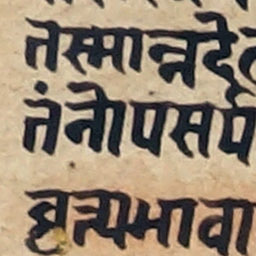 तस्मान्नदे
तंनोपसर्प
वृत्त्यभावा